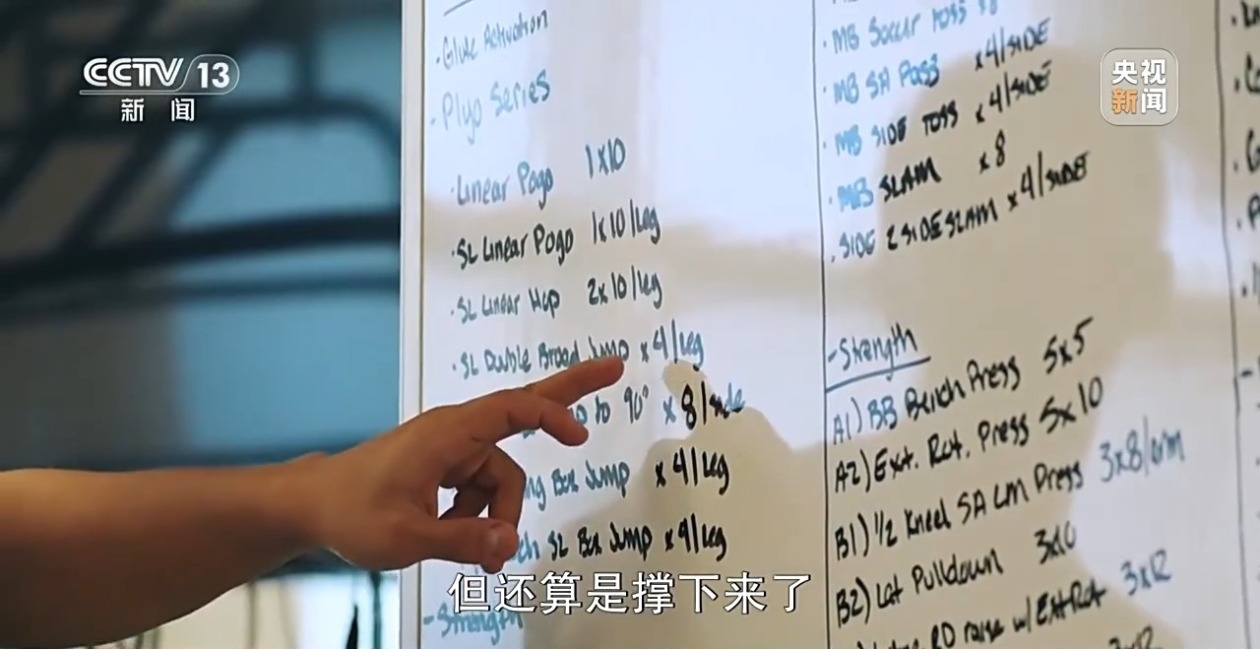 CCTV 13
新闻
央视
新闻
- Glute Activation
- Plyo Series
· Linear Pogo 1x10
· SL Linear Pogo 1x10/leg
· SL Linear Hop 2x10/leg
· SL Double Broad Jump x4/leg
to 90° x 8/side
Box Jump x4/leg
SL Box Jump x4/leg
- Strength
· MB Soccer Toss x8
· MB SA Pass x4/SIDE
· MB SIDE TOSS x4/SIDE
· MB SLAM x8
· SIDE 2 SIDE SLAM x4/SIDE
- Strength
A1) BB Bench Press 5x5
A2) Ext. Rot. Press 5x10
B1) 1/2 Kneel SA LM Press 3x8/arm
B2) Lat Pulldown 3x10
raise w/ Ext Rot 3x12
但还算是撑下来了